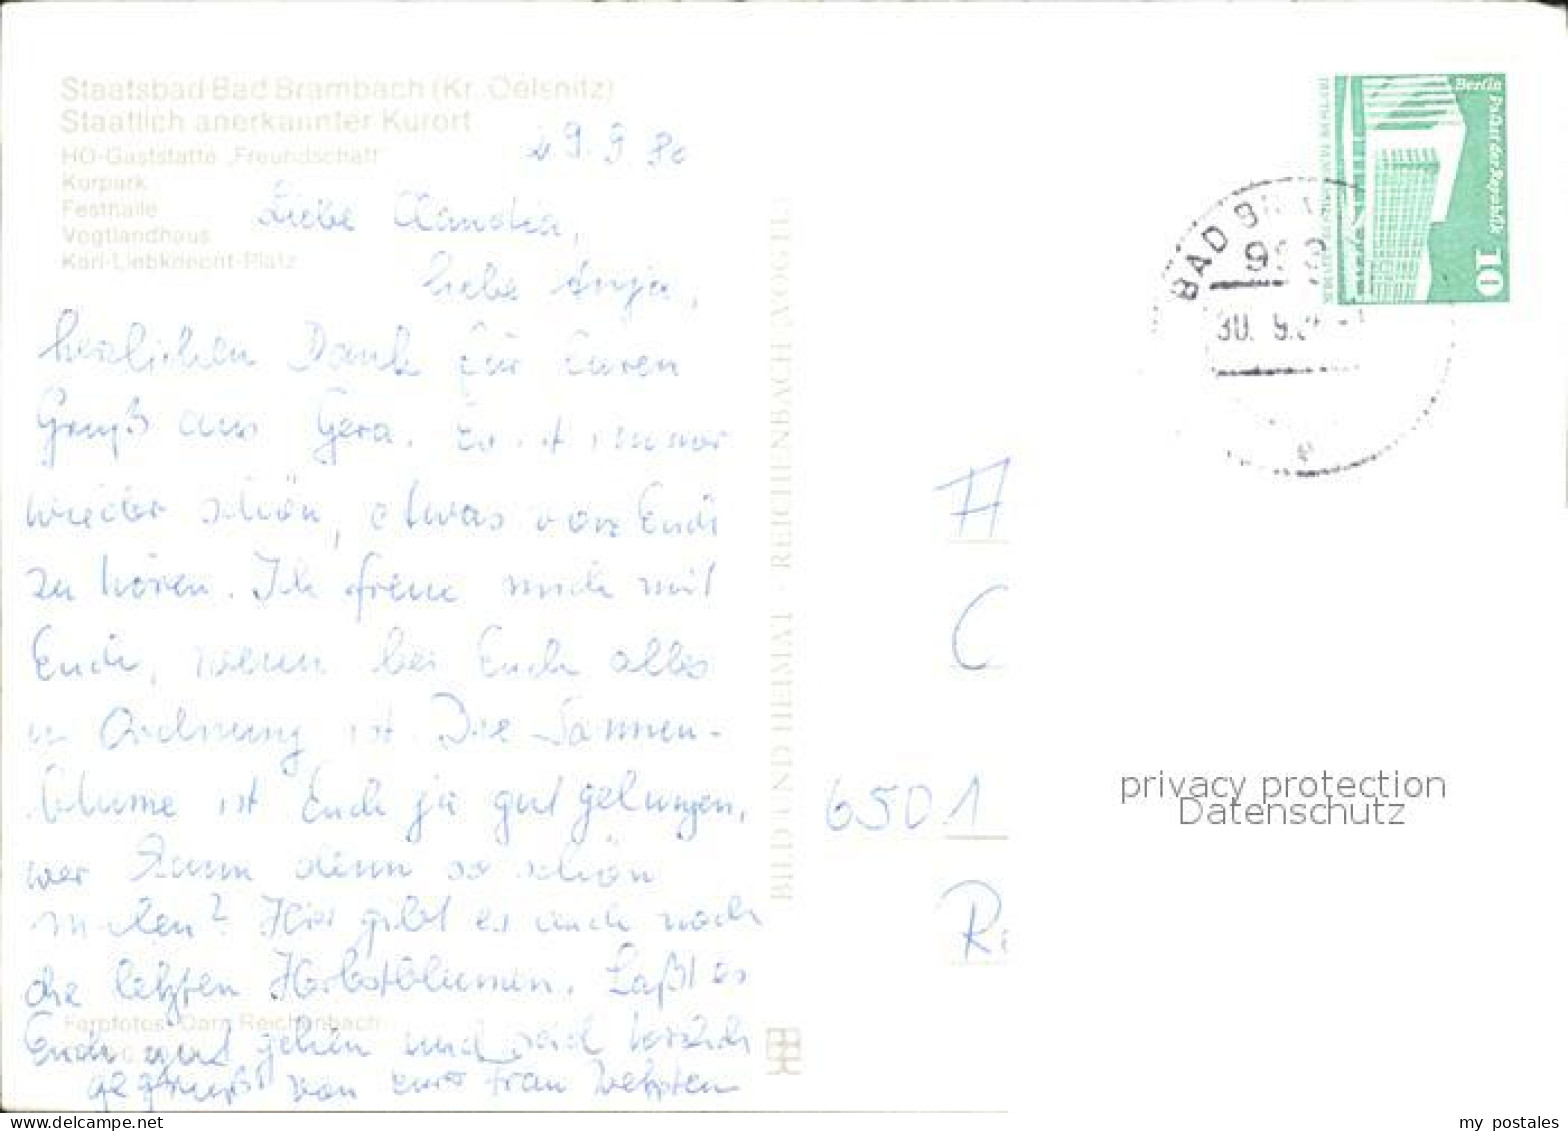 Staatsbad Bad Brambach (Kr. Oelsnitz)
Staatlich anerkannter Kurort
HO-Gaststätte „Freundschaft“
Kurpark
Festhalle
Vogtlandhaus
Karl-Liebknecht-Platz
29.9.80
Liebe Claudia,
liebe Anja,
herzlichen Dank für Euren
Gruß aus Gera. Es ist immer
wieder schön, etwas von Euch
zu hören. Ich freue mich mit
Euch, wenn bei Euch alles
in Ordnung ist. Die Sonnen-
blume ist Euch ja gut gelungen,
wer kann denn so schön
malen? Hier gibt es auch noch
die letzten Herbstblumen. Laßt es
Euch gut gehen und seid herzlich
gegrüßt von Eurer Frau
Farbfotos: Darr, Reichenbach
BILD UND HEIMAT · REICHENBACH (VOGTL)
Berlin Palast der Republik
10
BAD BR
30. 9.
F
C
6501
R
privacy protection
Datenschutz
my postales